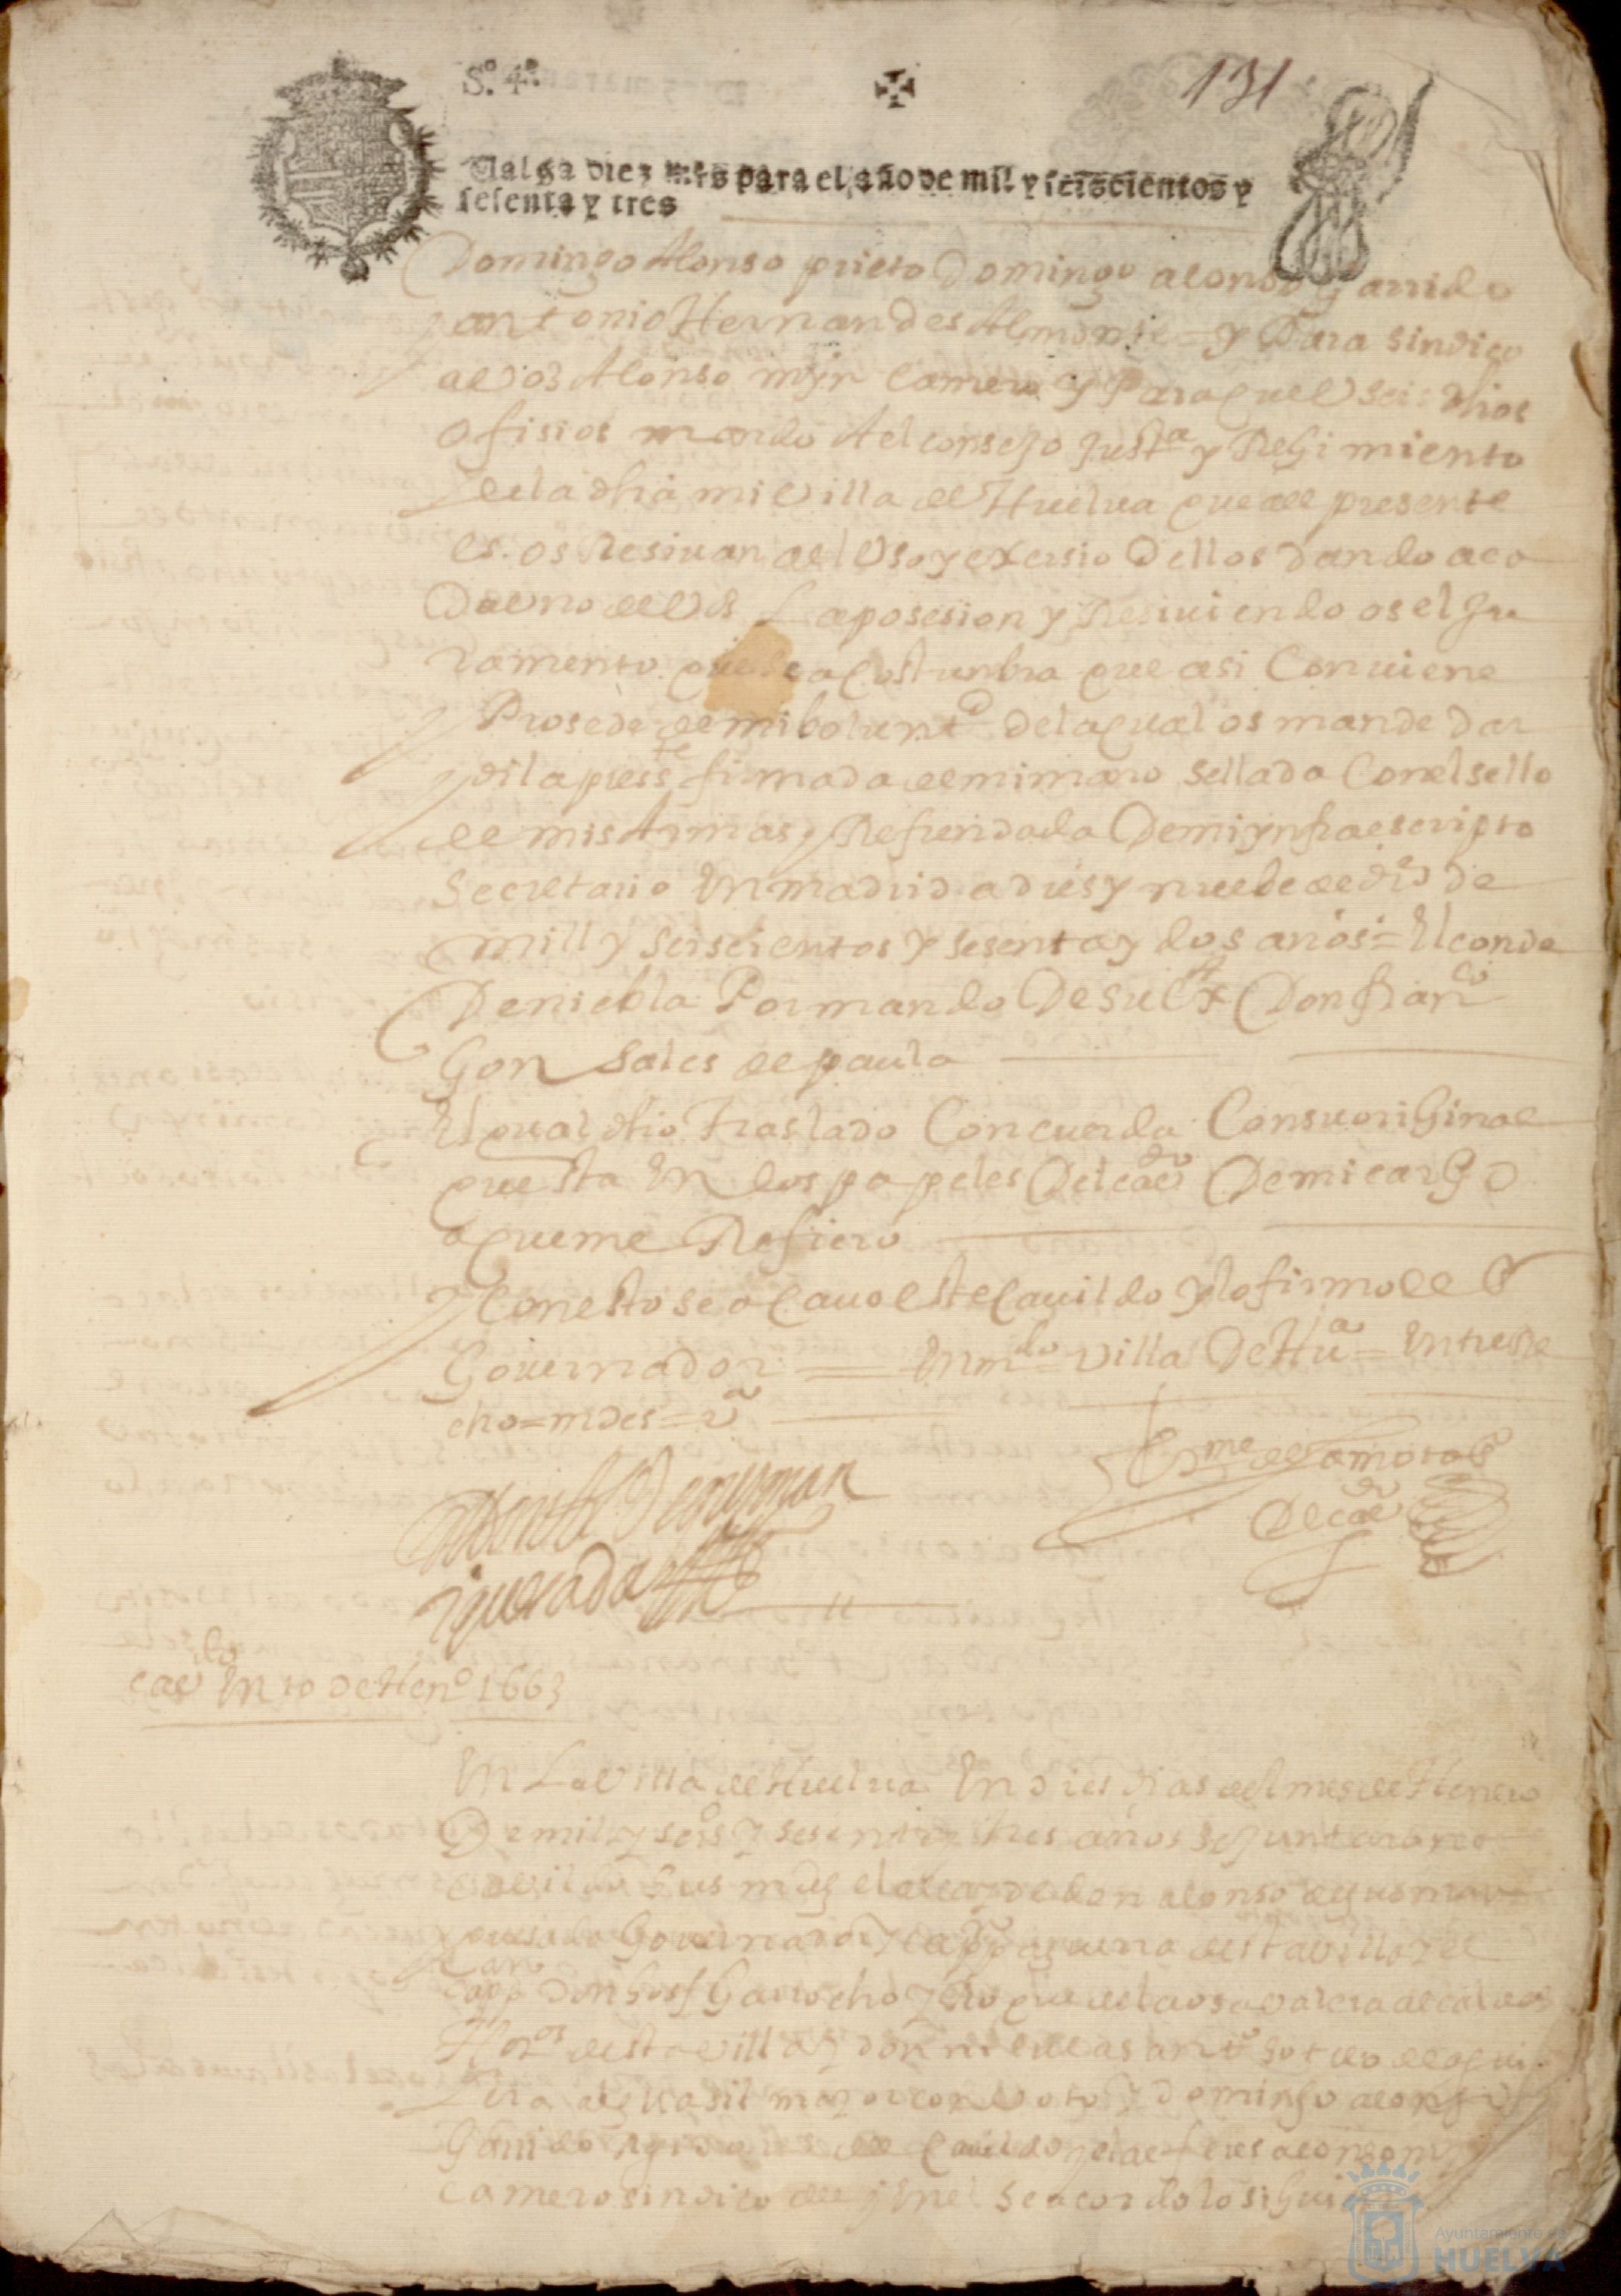 S.º 4.º
131
Valga diez mrs para el año de mil y seiscientos y
sesenta y tres
Domingo Alonso prieto Domingo alonso Garrido
y antonio Hernandes Almonte = y Para sindico
a vos Alonso min Camero y Para que useis dhos
ofisios mando Al consejo Justa y Regimiento
de la dha mi Villa de Huelua que al presente
es. os Resiuan al Uso y exersio Dellos dando a ca
da uno de Vos La posesion y Resiuiendo os el Ju
ramento que se acostunbra que asi Conuiene
y Prosede de mi bolunt.d de la qual os mande dar
y di la press.te firmada de mi mano sellada Con el sello
de mis Armas y Refrendada De mi ynfraescripto
Secretario En madrid a dies y nuebe de de
mill y seiscientos y sesenta y dos años = El conde
De niebla Por mando De su Ex.a Don fran.co
Gonsales de paula
El qual dho traslado Concuerda Con su original
que sta En los papeles Del cau.do De mi cargo
a que me Refiero
y Con esto se acauo este Cauildo y lo firmo el
Gouernador = Enm.do villa De Hu.a = Entre Re
=
de Guzman
quesada
de amora
Del cau.do
cau.do En 10 De Hen.o 1663
En La Villa de Huelua En dies dias del mes de Henero
De mil y seis.s y sesenta y tres años se Juntaron a
cauildo sus mds el don alonso de gusman
quesada Gouernador y capp.an a guerra desta villa y el
capp.an Don Garrocho y de la osa valera alcaldes
Hor.os desta villa y don nicolas ant.o de agui
lera alguasil mayor con Voto y domingo alonso
Garrido Cauildo y alonso
camero sindico del y En el se acordo lo siguie
Ayuntamiento de
HUELVA